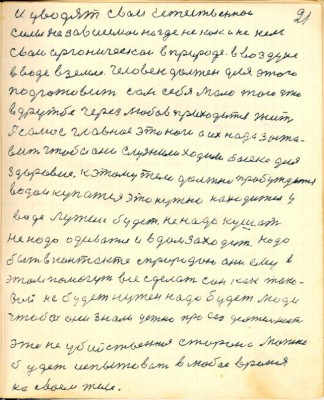 21
и уводят своей естественной
силы независимой нигде не как и не кем
своей органической в природе в воздухе
в воде в земле. Человек должен для этого
подготовить сам себя Мало того это
в дружбе через любов приходится жить
А самое главное это ноги а их надо заста-
вить чтобы они служили ходили было для
здоровие. К этому тело должно пробуждатся
водой купатся это нужно находится у
воде Лучше будет не надо кушат
не надо одеватся и в дом заходит надо
быть в контакте с природою они ему в
этом помогут все сделат сон как тако-
вой не будет нужен надо будет люди
чтобы они знали устно про эго деятелност
это не убийственная сторона можно
будет испытоват в любое время
на своем теле.